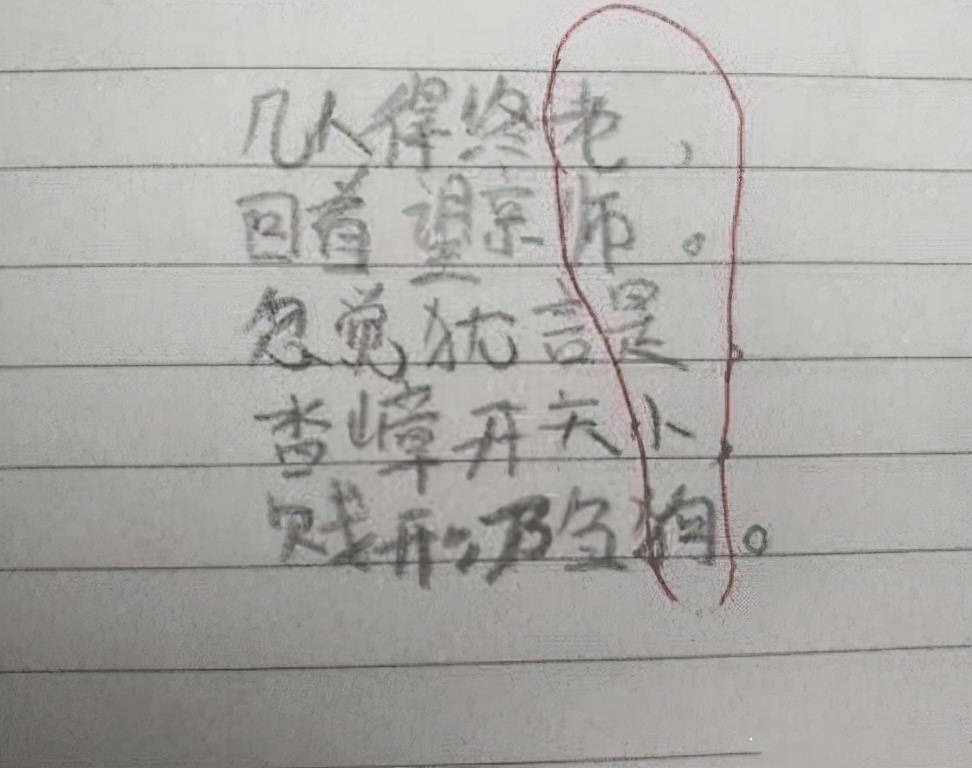 几人得终老,
回首望宗师。
忽觉犹言是
杳嶂开天小
贱形乃刍狗。